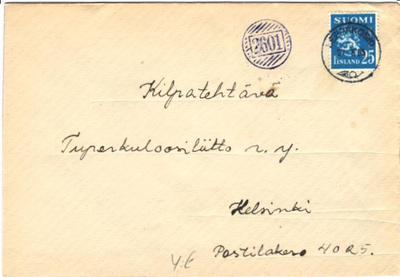 2601
SUOMI
FINLAND 25
Kilpatehtävä
Tuperkuloosiliitto r.y.
Helsinki
Postilokero 4025.
Y.E